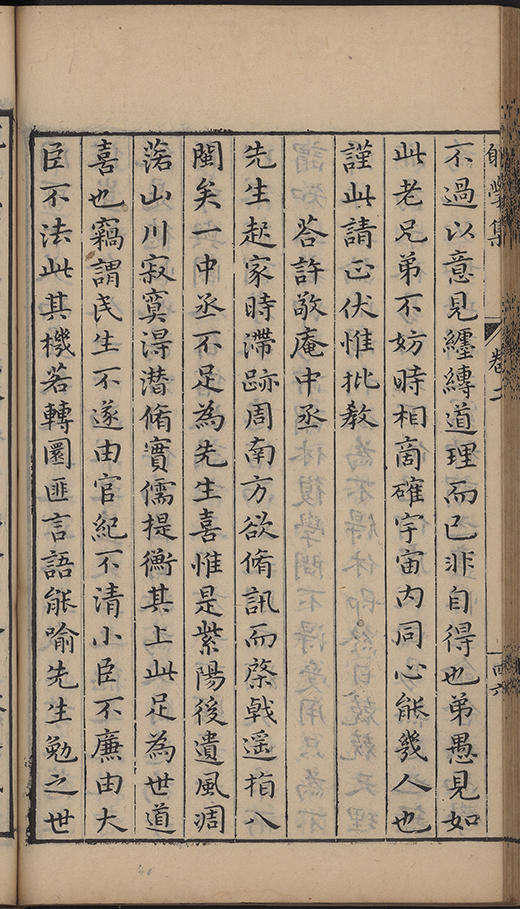 學集
卷二
四六
不過以意見纏縛道理而已非自得也弟愚見如
此老兄弟不妨時相啇確宇宙内同心能幾人也
謹此請正伏惟批教
荅許敬庵中丞
先生起家時滯跡周南方欲脩訊而棨戟遥指八
閩矣一中丞不足為先生喜惟是紫陽後遺風凋
落山川寂寞得潜脩實儒提衡其上此足為世道
喜也竊謂民生不遂由官紀不清小臣不廉由大
臣不法此其機若轉圜匪言語能喻先生勉之世